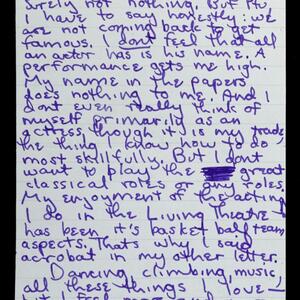 surely not nothing. But
I have to say honestly: we
are not coming back to get
famous. I dont feel that all
an actor has is his name. A
performance gets me high.
My name in the papers
does nothing to me. And I
dont even really think of
myself primarily as an
actress, though it is my trade,
the thing I know how to do
most skillfully. But I dont
want to play the great
classical roles or any roles.
My enjoyment of the acting
I do in the Living Theatre
has been it's basket ball team
aspects. That's why I said
acrobat in my other letter.
Dancing, climbing, music,
all these things I love